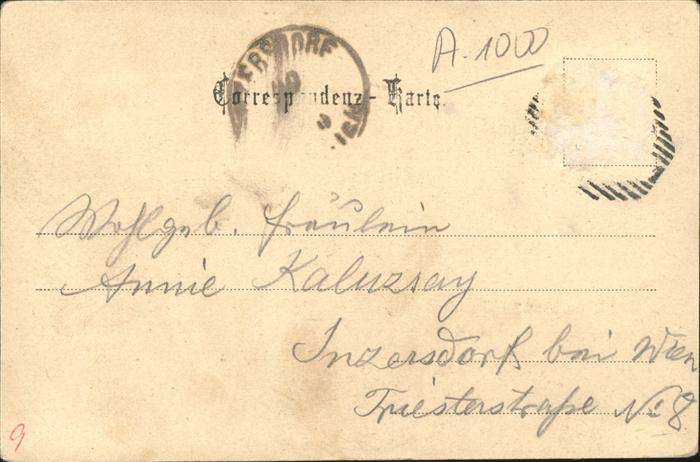 A. 1000
Correspondenz-Karte.
ERSDORF
Wohlgeb. Fräulein
Annie Kaluzsay
Inzersdorf bei Wien
Triesterstraße No 8
9